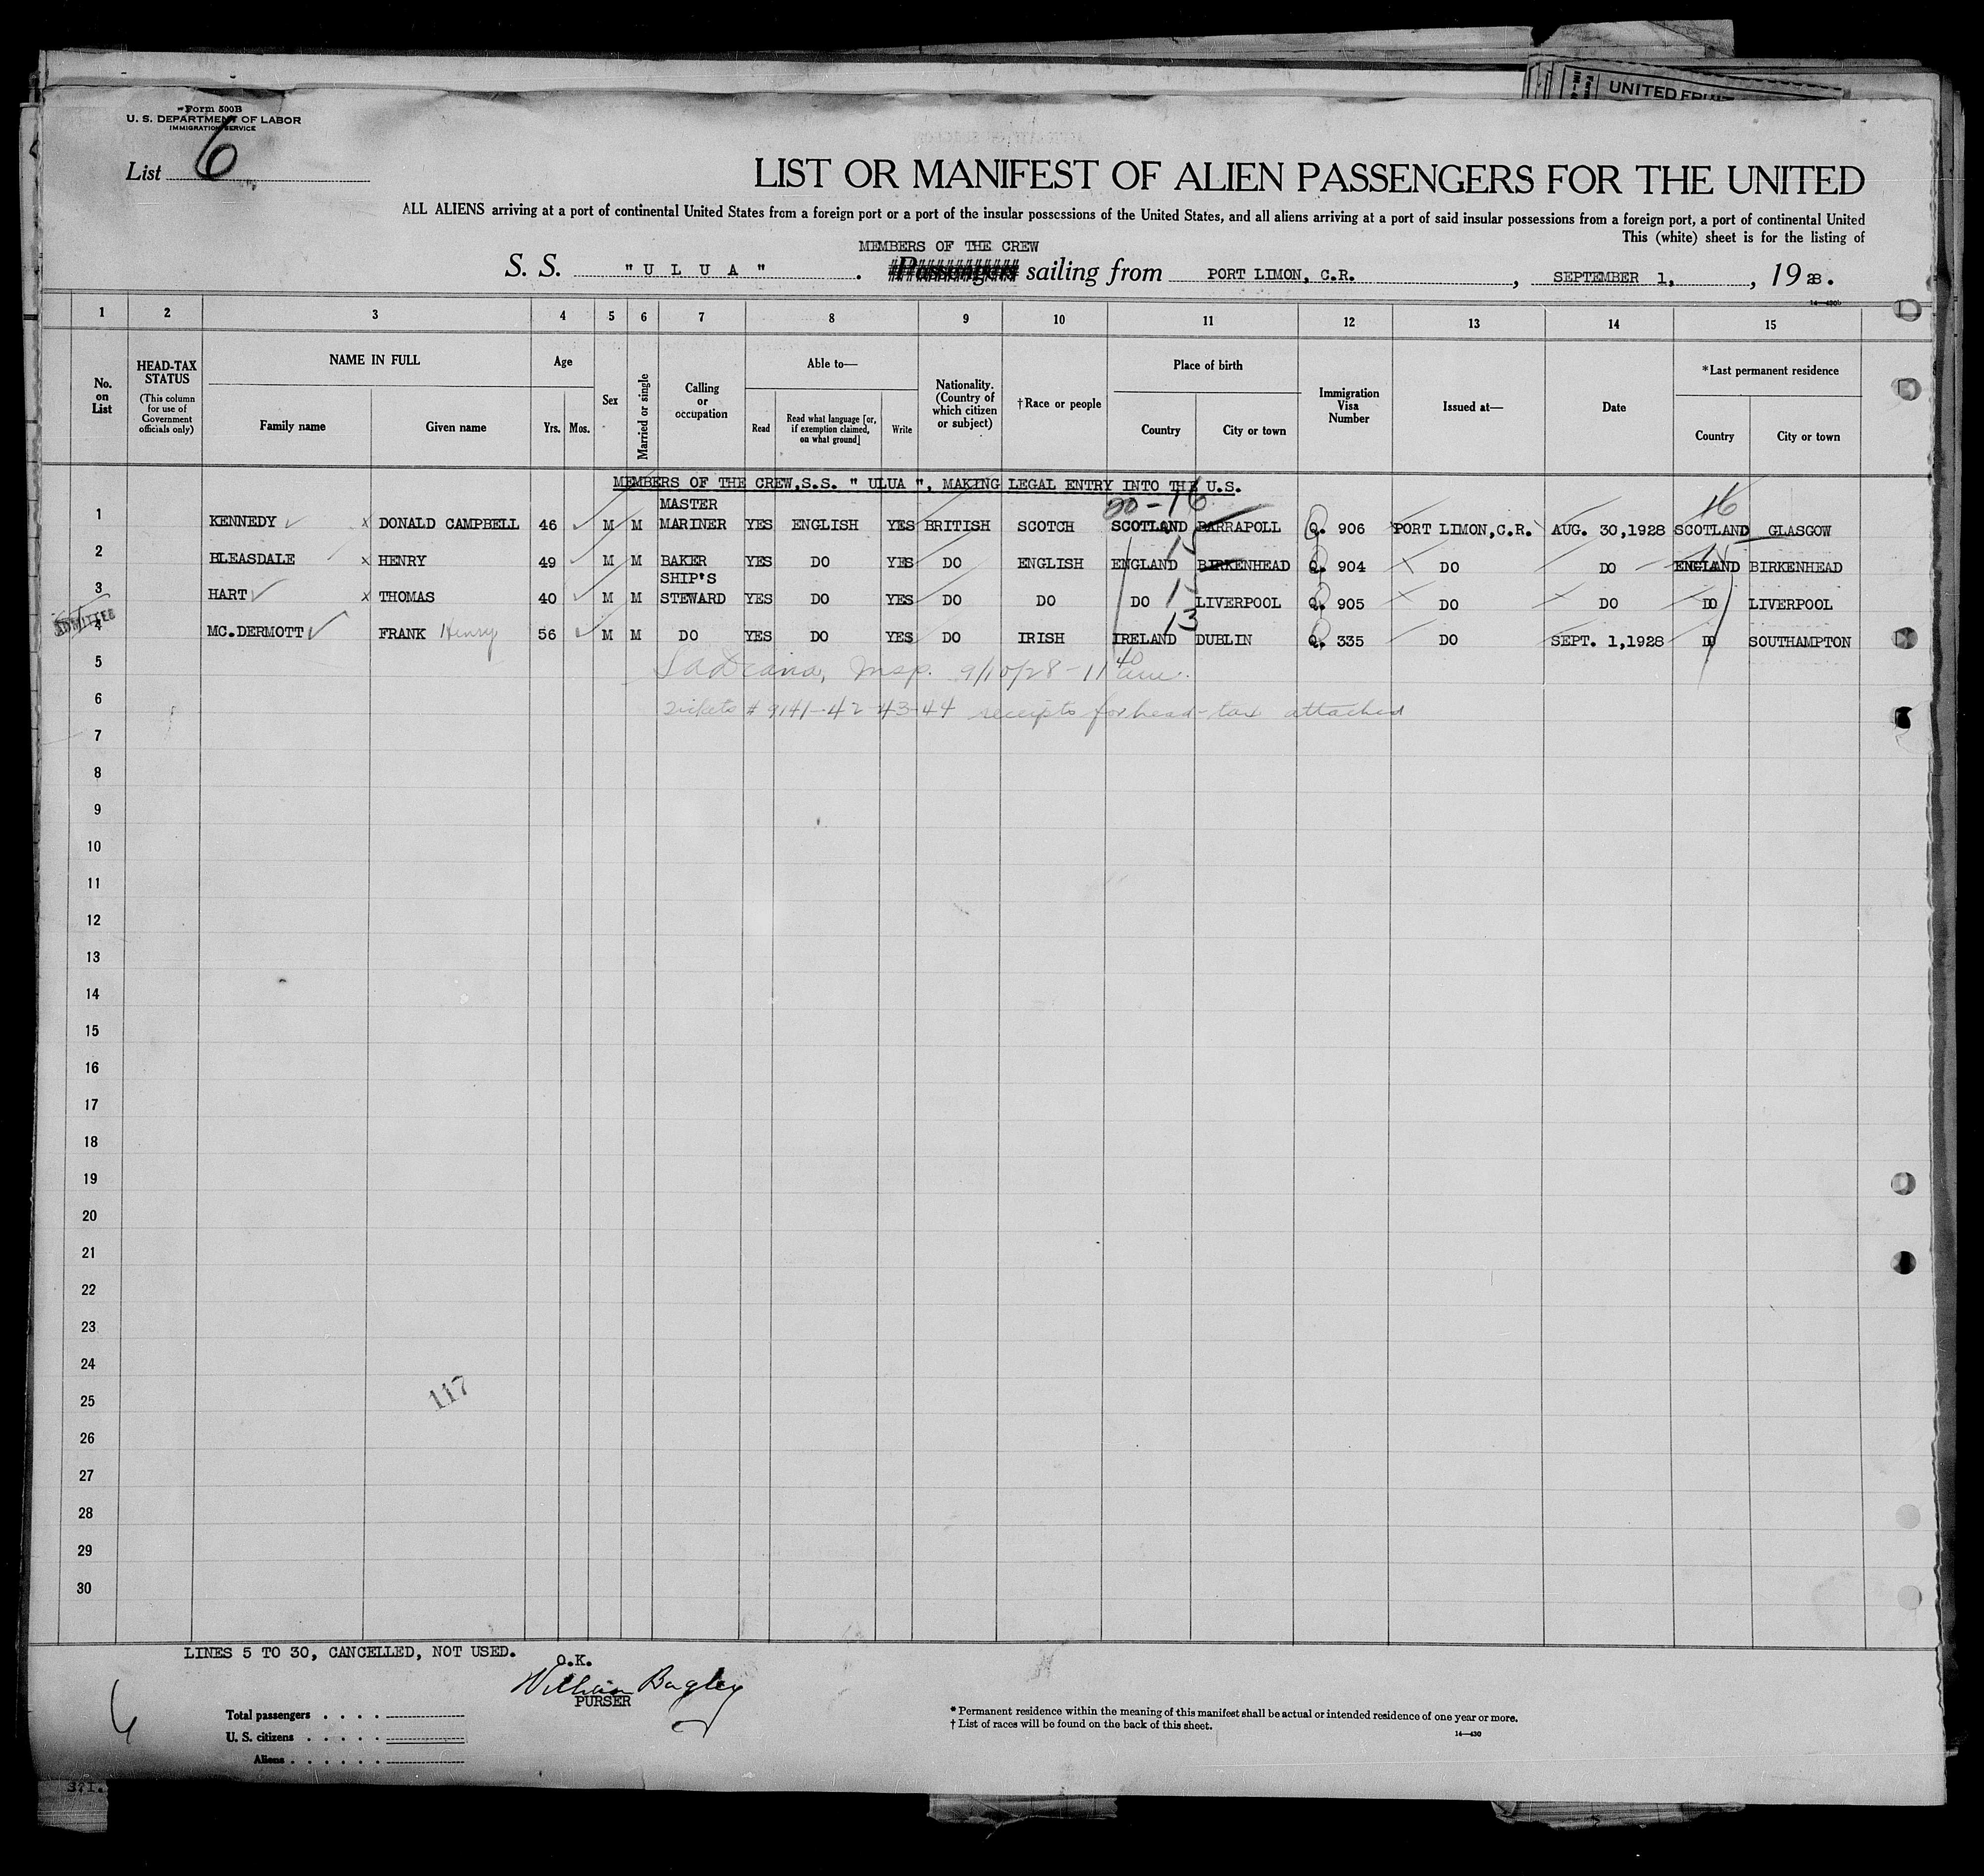 UNITED FRUIT
Form 500B
U. S. DEPARTMENT OF LABOR
IMMIGRATION SERVICE
List 6
LIST OR MANIFEST OF ALIEN PASSENGERS FOR THE UNITED
ALL ALIENS arriving at a port of continental United States from a foreign port or a port of the insular possessions of the United States, and all aliens arriving at a port of said insular possessions from a foreign port, a port of continental United
This (white) sheet is for the listing of
MEMBERS OF THE CREW
S. S. "U L U A". Passengers sailing from PORT LIMON, C.R., SEPTEMBER 1, , 1928.
14—430b
1 2 3 4 5 6 7 8 9 10 11 12 13 14 15
No. on List
HEAD-TAX STATUS (This column for use of Government officials only)
NAME IN FULL
Family name Given name
Age
Yrs. Mos.
Sex
Married or single
Calling or occupation
Able to—
Read Read what language [or, if exemption claimed, on what ground] Write
Nationality. (Country of which citizen or subject)
†Race or people
Place of birth
Country City or town
Immigration Visa Number
Issued at—
Date
*Last permanent residence
Country City or town
MEMBERS OF THE CREW,S.S. " ULUA ", MAKING LEGAL ENTRY INTO THE U.S.
20-16 16
1 KENNEDY x DONALD CAMPBELL 46 M M MASTER MARINER YES ENGLISH YES BRITISH SCOTCH SCOTLAND BARRAPOLL Q. 906 PORT LIMON,C.R. AUG. 30,1928 SCOTLAND GLASGOW
15 15
2 BLEASDALE x HENRY 49 M M BAKER YES DO YES DO ENGLISH ENGLAND BIRKENHEAD Q. 904 DO DO ENGLAND BIRKENHEAD
15
3 HART x THOMAS 40 M M SHIP'S STEWARD YES DO YES DO DO DO LIVERPOOL Q. 905 DO DO DO LIVERPOOL
ADMITTED 13
4 MC.DERMOTT FRANK Henry 56 M M DO YES DO YES DO IRISH IRELAND DUBLIN Q. 335 DO SEPT. 1,1928 DO SOUTHAMPTON
5 Insp. 9/10/28-11 40
6 Tickets # 9141-42-43-44 receipts for head-tax attached
7
8
9
10
11
12
13
14
15
16
17
18
19
20
21
22
23
24
25 117
26
27
28
29
30
LINES 5 TO 30, CANCELLED, NOT USED.
O.K.
William Bagley
PURSER
6
Total passengers
U. S. citizens
Aliens
* Permanent residence within the meaning of this manifest shall be actual or intended residence of one year or more.
† List of races will be found on the back of this sheet.
14—430